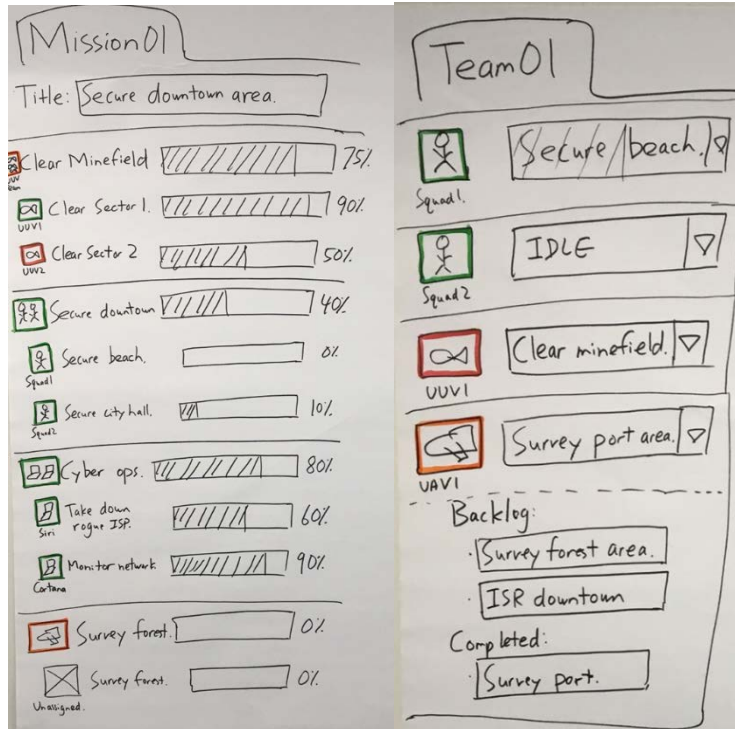 Mission01
Title: Secure downtown area.
Clear Minefield 75%
UUV
Clear Sector 1. 90%
UUV1
Clear Sector 2 50%
UUV2
Secure downtown 40%
Secure beach. 0%
Squad1
Secure city hall. 10%
Squad2
Cyber ops. 80%
Take down
rogue ISP. 60%
Siri
Monitor network 90%
Cortana
Survey forest. 0%
Survey forest. 0%
Unassigned.
Team01
Secure beach.
Squad1.
IDLE
Squad2
Clear minefield.
UUV1
Survey port area.
UAV1
Backlog:
· Survey forest area.
· ISR downtown
Completed:
· Survey port.